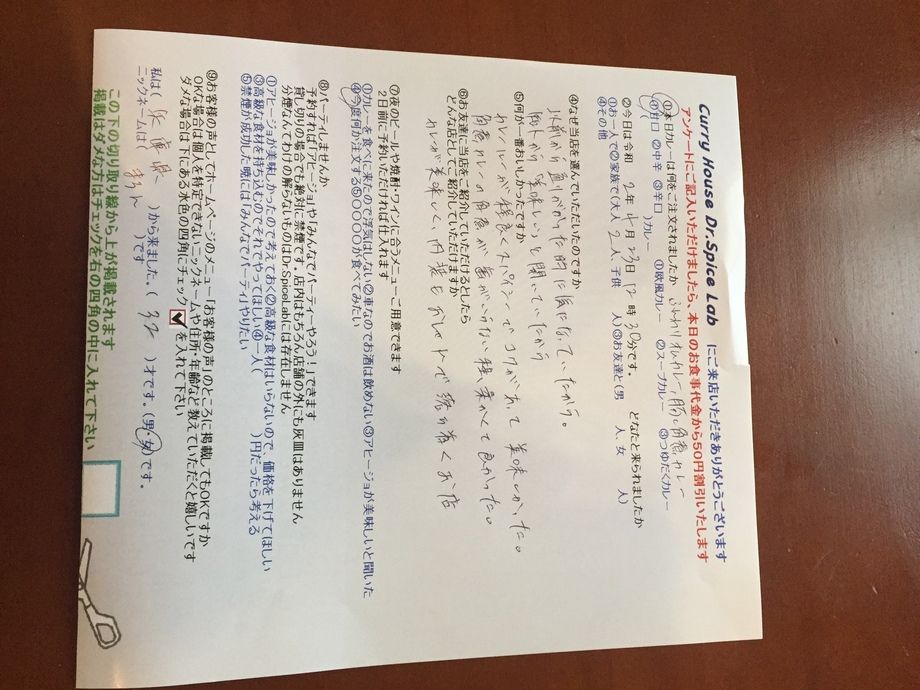 Curry House Dr.Spice Lab にご来店いただきありがとうございます
アンケートにご記入いただけましたら、本日のお食事代金から50円割引いたします
①本日のカレーは何をご注文されましたか
①甘口 ②中辛 ③辛口 ( )カレー ①欧風カレー ②スープカレー ③つゆだくカレー
②今日は令和 2年4月23日12時30分です。 どなたと来られましたか
①お一人で②ご家族で(大人2人、子供 人)③お友達と(男 人、女 人)
④その他
④なぜ当店を選んでいただいたのですか
前から気になっていたから。
美味しいと聞いていたから
⑤何が一番おいしかったですか
カレールーが程良くスパイシーでコクがあって美味しかった。
角煮カレーの角煮が歯がいらない程柔かくて良かった。
⑥お友達に当店をご紹介していただけるとしたら
どんな店としてご紹介していただけますか
カレーが美味しく、内装もおしゃれで落ち着くお店
⑦夜のビールや焼酎・ワインに合うメニューご用意できます
2日前に予約いただければ仕入れます
①カレーを食べに来たので浮気はしない②車なのでお酒は飲めない③アヒージョが美味しいと聞いた
④今度何か注文する⑤〇〇〇〇が食べてみたい
⑧パーティしませんか
予約すれば「アヒージョ」や「みんなでパーティーやろう！」できます
貸し切りの場合でも絶対に禁煙です。店内はもちろん店舗の外にも灰皿はありません
分煙なんてわけの解らないものはDr.SpiceLabには存在しません
①アヒージョが美味しかったので考えておく②高級な食材はいらないので、価格を下げてほしい
③高級な食材を持ち込むのでそれでやってほしい④一人( )円だったら考える
⑤禁煙が成功した晩には「みんなでパーティ」やりたい
⑨お客様の声としてホームページのメニュー「お客様の声」のところに掲載してもOKですか
OKな場合は個人を特定できないニックネームや住所・年齢など教えていただくと嬉しいです
ダメな場合は下にある水色の四角にチェック✓を入れて下さい
私は( )から来ました。( 32 )才です。(男・女)です。
ニックネームは( )です
この下の切り取り線から上が掲載されます
掲載はダメな方はチェックを右の四角の中に入れて下さい